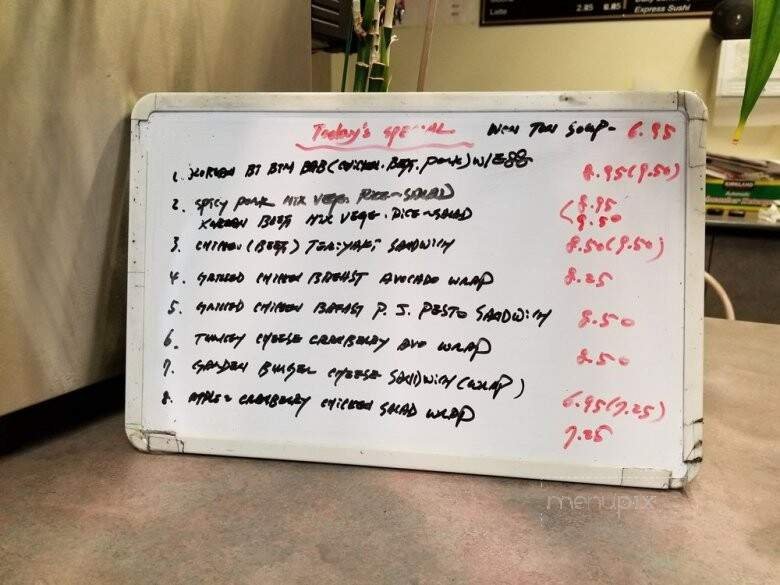 Latte 2.85 Express Sushi
Today's SPECIAL WON TON SOUP- 6.95
1. KOREAN BI BIM BAB (CHICKEN. BEEF. PORK) W/EGG 8.95(9.50)
2. SPICY PORK MIX VEGE. RICE~SALAD 8.95
KOREAN BEEF MIX VEGE. RICE~SALAD 9.50
3. CHICKEN (BEEF) TERIYAKI SANDWICH 8.50(9.50)
4. GRILLED CHICKEN BREAST AVOCADO WRAP 8.25
5. GRILLED CHICKEN BREAST P. J. PESTO SANDWICH 8.50
6. TURKEY CHEESE CRANBERRY AVO WRAP 8.50
7. GARDEN BURGER CHEESE SANDWICH (WRAP) 6.95(7.25)
8. APPLE & CRANBERRY CHICKEN SALAD WRAP 7.25
KIRKLAND
menupix